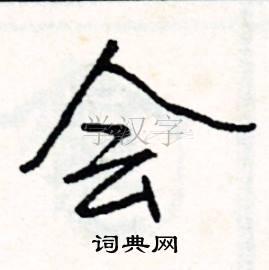 会
学汉字
词典网